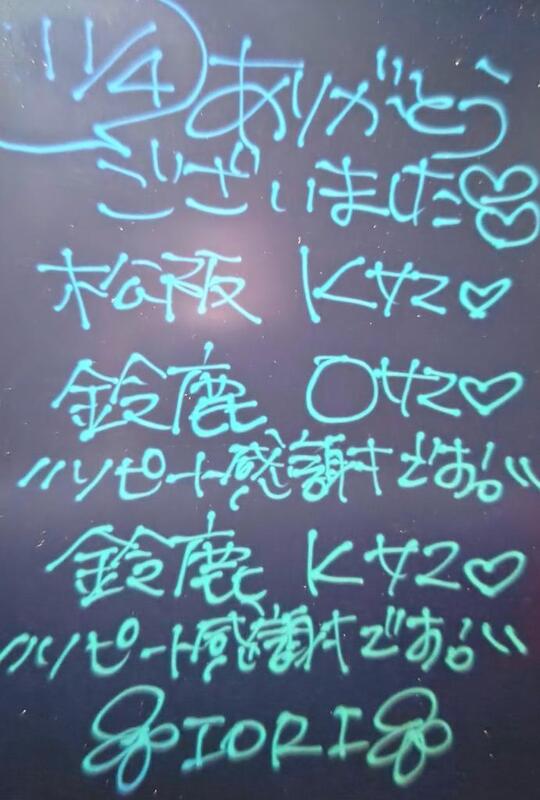 11/4 ありがとう
ございました♡♡
松阪 Kサマ♡
鈴鹿 Oサマ♡
〃リピート感謝です!!〃
鈴鹿 Kサマ♡
〃リピート感謝です!!〃
IORI